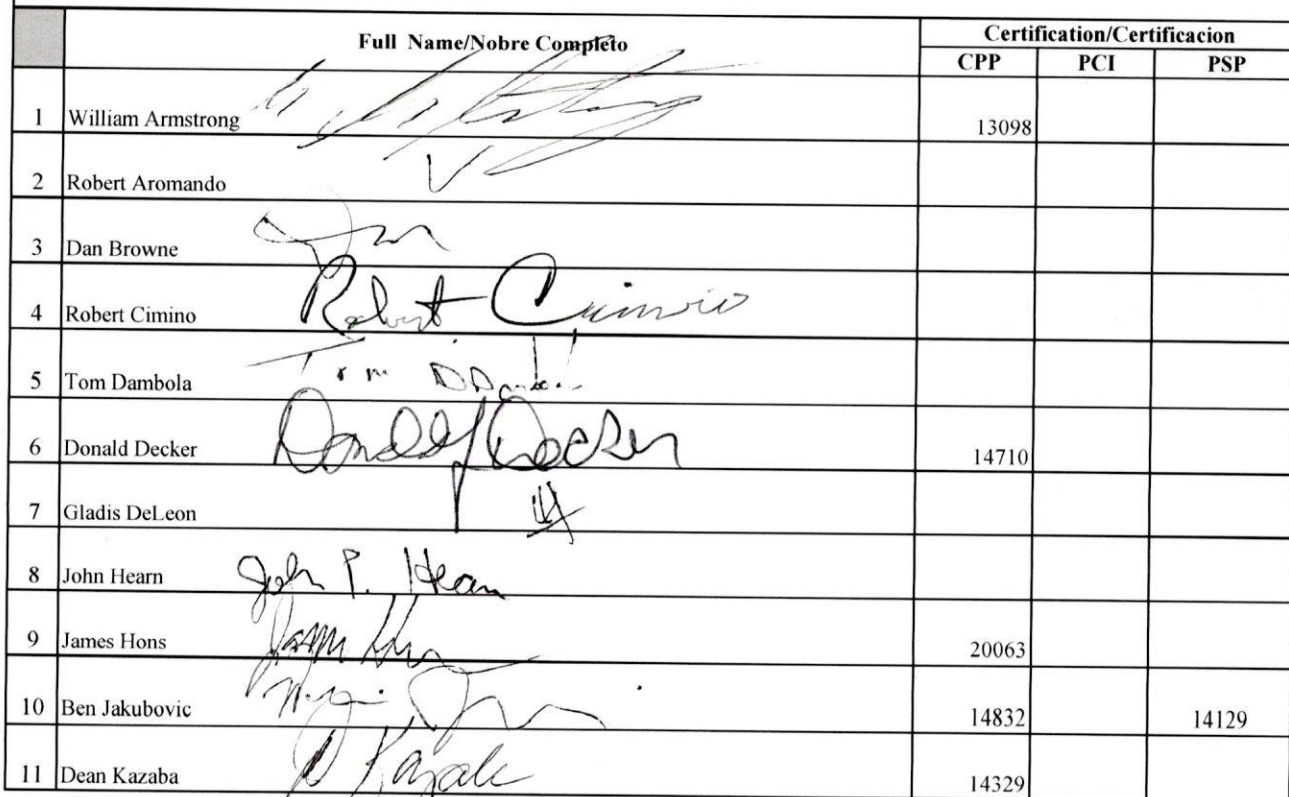 Full Name/Nobre Completo Certification/Certificacion
CPP PCI PSP
1 William Armstrong 13098
2 Robert Aromando
3 Dan Browne
4 Robert Cimino Robert Cimino
5 Tom Dambola Tom
6 Donald Decker Donald J Decker 14710
7 Gladis DeLeon
8 John Hearn John P. Hearn
9 James Hons 20063
10 Ben Jakubovic 14832 14129
11 Dean Kazaba 14329